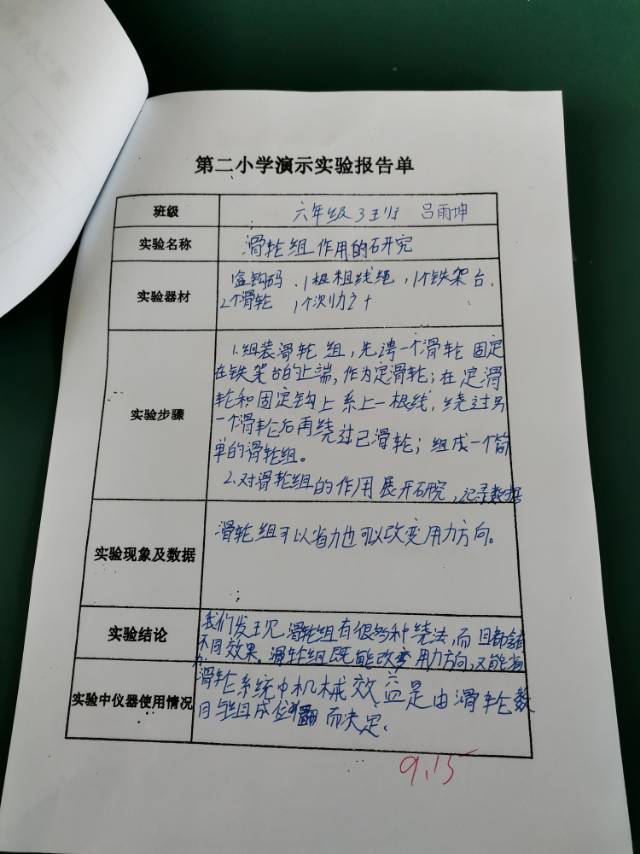 第二小学演示实验报告单
班级 六年级3班 吕雨坤
实验名称 滑轮组作用的研究
实验器材 1盒钩码、1根粗线绳，1个铁架台、
2个滑轮 1个测力计
实验步骤 1.组装滑轮组，先将一个滑轮固定
在铁架台的上端，作为定滑轮；在定滑
轮和固定钩上系上一根线，绕过另
一个滑轮后再绕过已滑轮；组成一个简
单的滑轮组。
2.对滑轮组的作用展开研究，记录数据
实验现象及数据 滑轮组可以省力也可以改变用力方向。
实验结论 我们发现滑轮组有很多种绕法，而且都会有
不同效果，滑轮组既能改变用力方向，又能省
实验中仪器使用情况 滑轮系统中机械效益是由滑轮数
目与组成位置而决定。
9.15